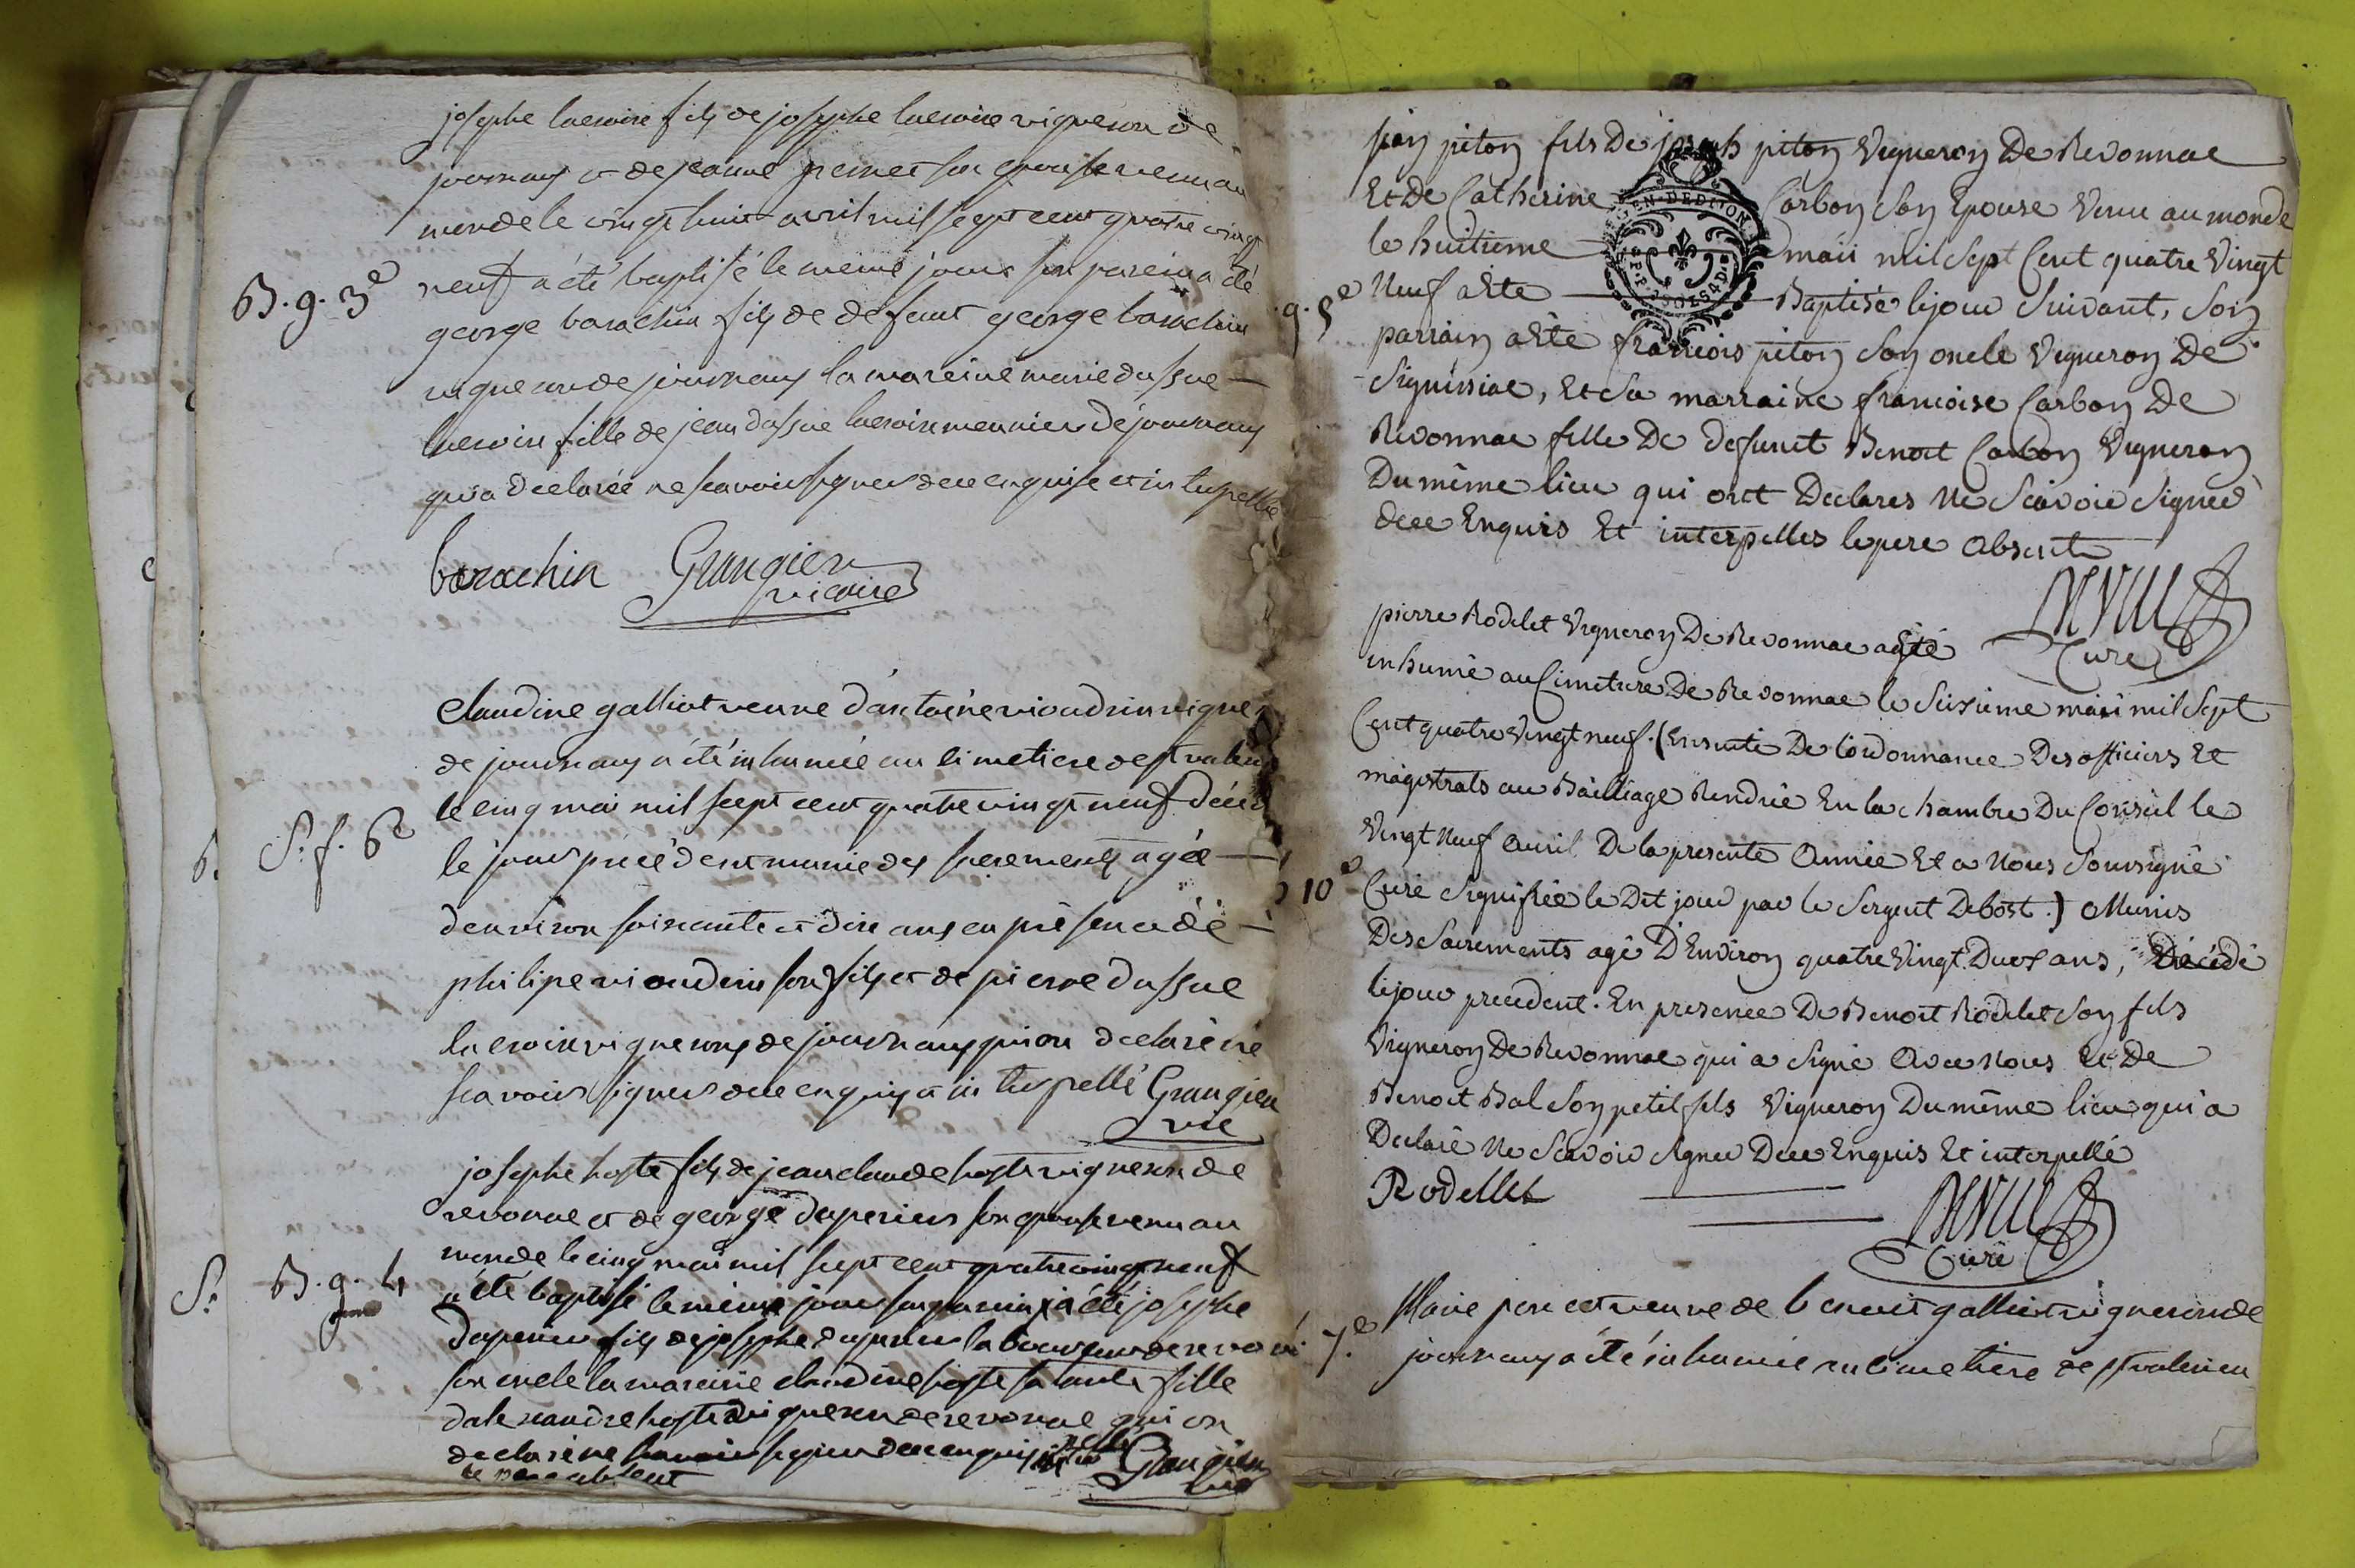 josephe lacroix fils de josephe lacroix vigneron de
journans et de jeanne pernet son epouse venu au
monde le vingt huit avril mil sept cent quatre vingt
B. g. 3e
neuf a été baptisé le meme jour son parein a été
george barachin fils de defunt george barachin
vigneron de journans la mareine marie dassue
lacroix fille de jean dassue lacroix meunier de journans
qui a declarée ne scavoir signer de ce enquise et interpellée
barachin Grangier
vicaire
Claudine galliot veuve d'antoine vioudrin vigneron
de journans a été inhumée au cimetiere de st valerien
le cinq mai mil sept cent quatre vingt neuf décédée
S. f. 6e
le jour précédent munie des sacrements agée
denviron soixante et dix ans en présence de
philipe vioudrin son fils et de pierre dassue
lacroix vignerons de journans qui on declaré ne
scavoir signer de ce enquis et interpellé Grangier
vic
josephe hoste fils de jean claude hoste vigneron de
revonna et de george duperier son epouse venu au
monde le cinq mai mil sept cent quatre vingt neuf
B. g. 4
a été baptisé le meme jour son parein a été josephe
duperier fils de josephe duperier laboureur de revona
son oncle la mareine claudine hoste sa tante fille
dalexandre hoste vigneron de revonna qui on
declaré ne scavoir signer de ce enquis interpellé Grangier
le pere absent vic
piton fils De joseph piton Vigneron De Revonnac
Et De Catherine Carbon Son Epouse Venu au monde
le huitieme maii mil Sept Cent quatre Vingt
g. 5e
Neuf a Ete Baptisé le jour Suivant, Son
parrain a Ete francois piton Son oncle Vigneron De
Signissiac, Et Sa marraine francoise Carbon De
Revonnac fille De Defunct Benoit Carbon Vigneron
Du même lieu qui ont Declares Ne Scavoir Signer
de ce Enquis Et interpelles le pere Absent
Curé
pierre Rodelet Vigneron De Revonnac a Eté
inhumé au Cimetiere De Revonnac le Seizieme maii mil Sept
Cent quatre Vingt neuf. (Ensuite De l'ordonnance Des officiers Et
magistrats au Bailliage Rendüe En la chambre Du Conseil le
Vingt Neuf Avril De la presente Année Et a Nous Soussigné
10e
Curé Signifiée le Dit jour par le Sergent Debost.) Munis
Des Sacrements agé D'Environ quatre Vingt Deux ans, Décédé
le jour precedent. En presence De Benoit Rodelet Son fils
Vigneron De Revonnac qui a Signé Avec Nous Et De
Benoit Bal Son petit fils Vigneron Du même lieu qui a
Declaré Ne Scavoir Signer De ce Enquis Et interpellé
Rodellet
Curé
7.e
Marie veuve de benoit galliot vigneron de
journans a été inhumée au cimetiere de st valerien